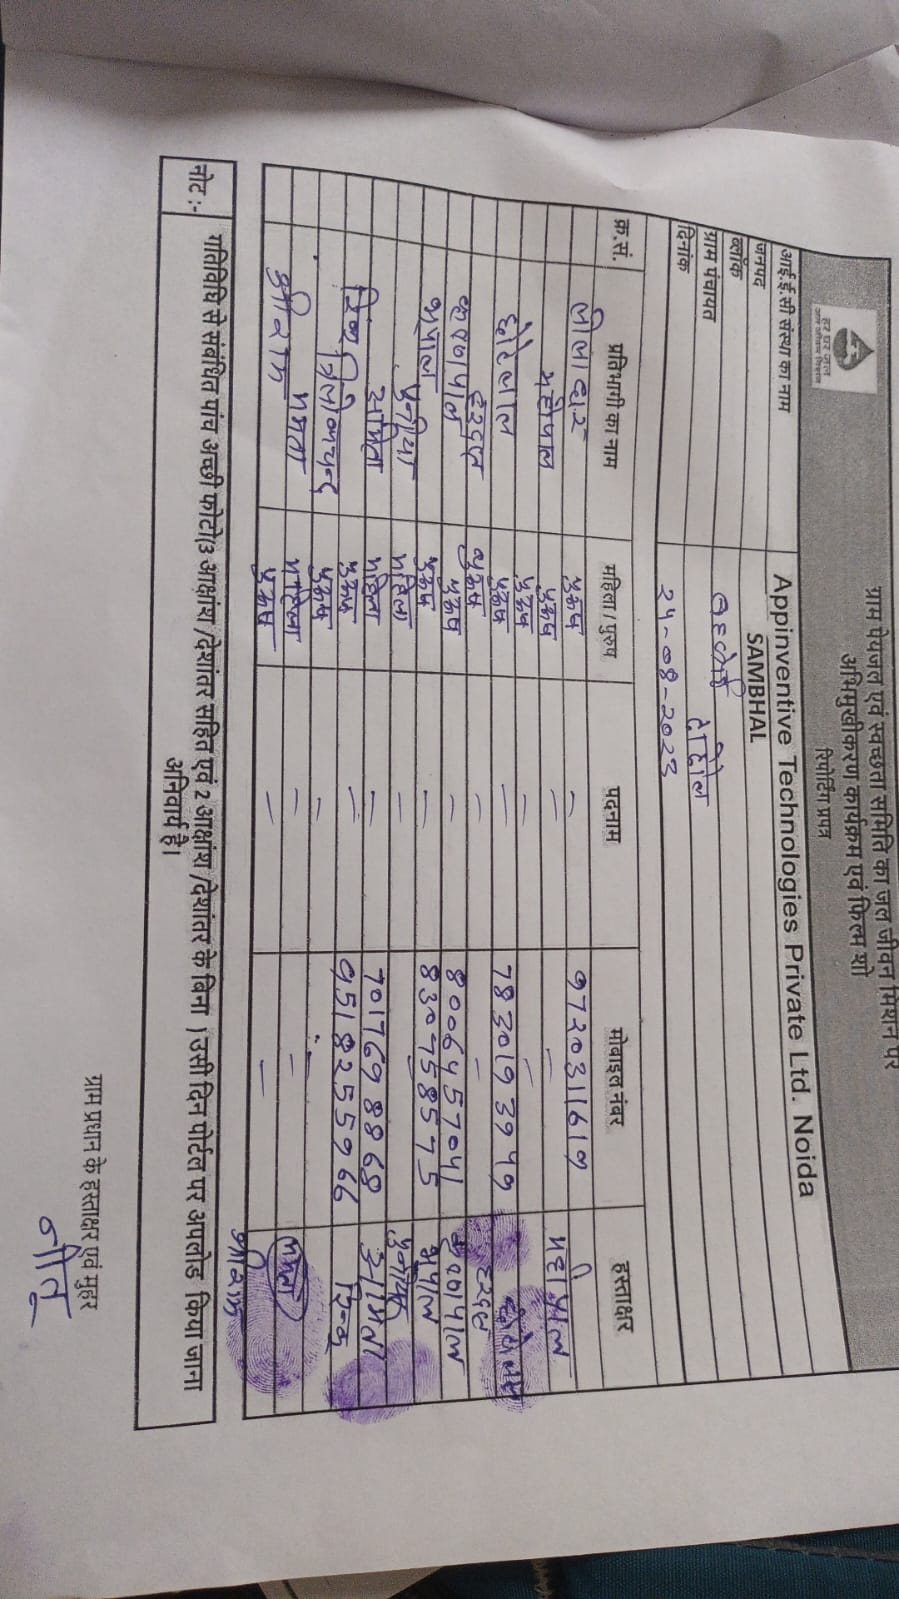 हर घर जल
जल जीवन मिशन
ग्राम पेयजल एवं स्वच्छता समिति का जल जीवन मिशन पर
अभिमुखीकरण कार्यक्रम एवं फिल्म शो
रिपोर्टिंग प्रपत्र
आई.ई.सी संस्था का नाम Appinventive Technologies Private Ltd. Noida
जनपद SAMBHAL
ब्लॉक
ग्राम पंचायत
दिनांक 24-08-2023
क्र.सं. प्रतिभागी का नाम महिला / पुरुष पदनाम मोबाइल नंबर हस्ताक्षर
लीलाधर पुरूष = 9720311619
महीपाल पुरूष = = महीपाल
पुरूष – =
छोटेलाल पुरूष – 7830193949 छोटेलाल
पुरूष – –
करनपाल पुरूष – 8006457041 करनपाल
भूपाल पुरूष = 830758575 भूपाल
महिला – –
महिला = 7017698868
पुरूष = 9518255966
त्रिलोकचन्द पुरूष – –
ममता महिला = – ममता
श्रीराम पुरूष – – श्रीराम
नोट :- गतिविधि से संबंधित पांच अच्छी फोटो(3 आक्षांश /देशांतर सहित एवं 2 आक्षांश /देशांतर के बिना )उसी दिन पोर्टल पर अपलोड किया जाना
अनिवार्य है।
ग्राम प्रधान के हस्ताक्षर एवं मुहर